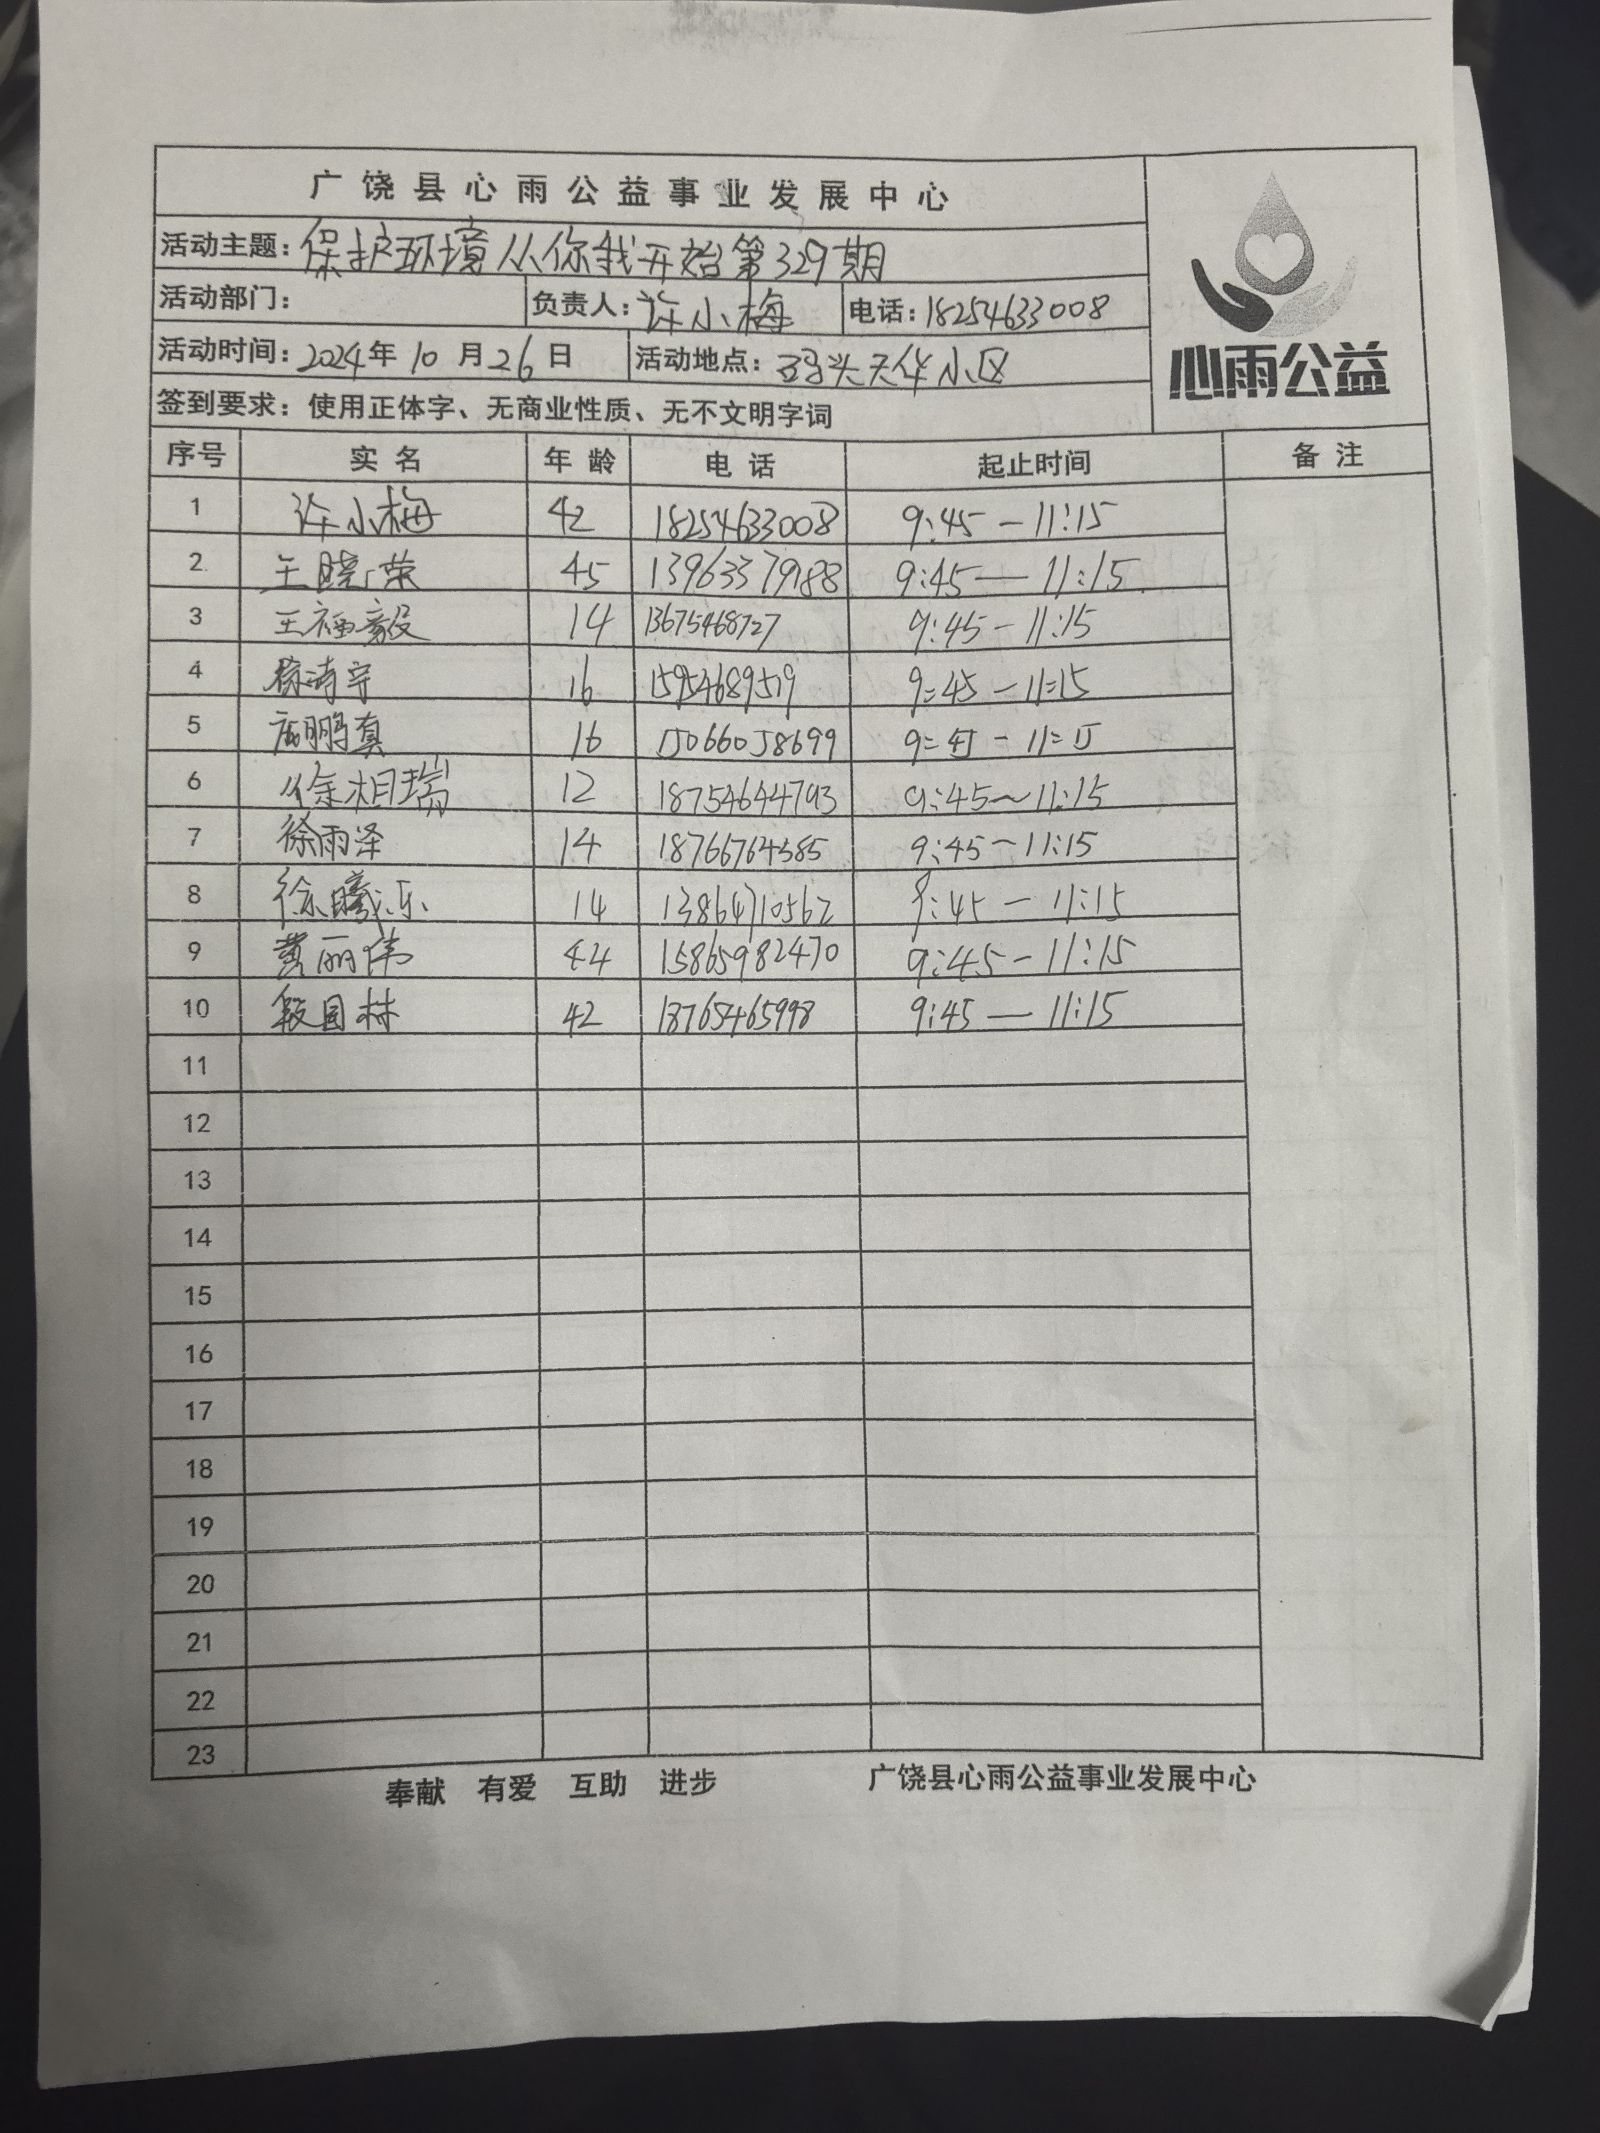 广饶县心雨公益事业发展中心
活动主题：保护环境从你我开始第329期
活动部门： 负责人：许小梅 电话：18254633008
活动时间：2024年10月26日 活动地点：码头天华小区
心雨公益
签到要求：使用正体字、无商业性质、无不文明字词
序号 实名 年龄 电话 起止时间 备注
1 许小梅 42 18254633008 9:45—11:15
2 王晓荣 45 13963379188 9:45—11:15
3 王福毅 14 13675468727 9:45-11:15
4 徐清宇 16 15954689519 9:45-11:15
5 鹏真 16 15066058699 9:45-11:15
6 徐相瑞 12 18754644793 9:45~11:15
7 徐雨泽 14 18766764385 9:45-11:15
8 徐曦乐 14 13864710562 9:45-11:15
9 黄丽伟 44 15865982470 9:45-11:15
10 段国林 42 18765465998 9:45—11:15
11
12
13
14
15
16
17
18
19
20
21
22
23
奉献 有爱 互助 进步 广饶县心雨公益事业发展中心